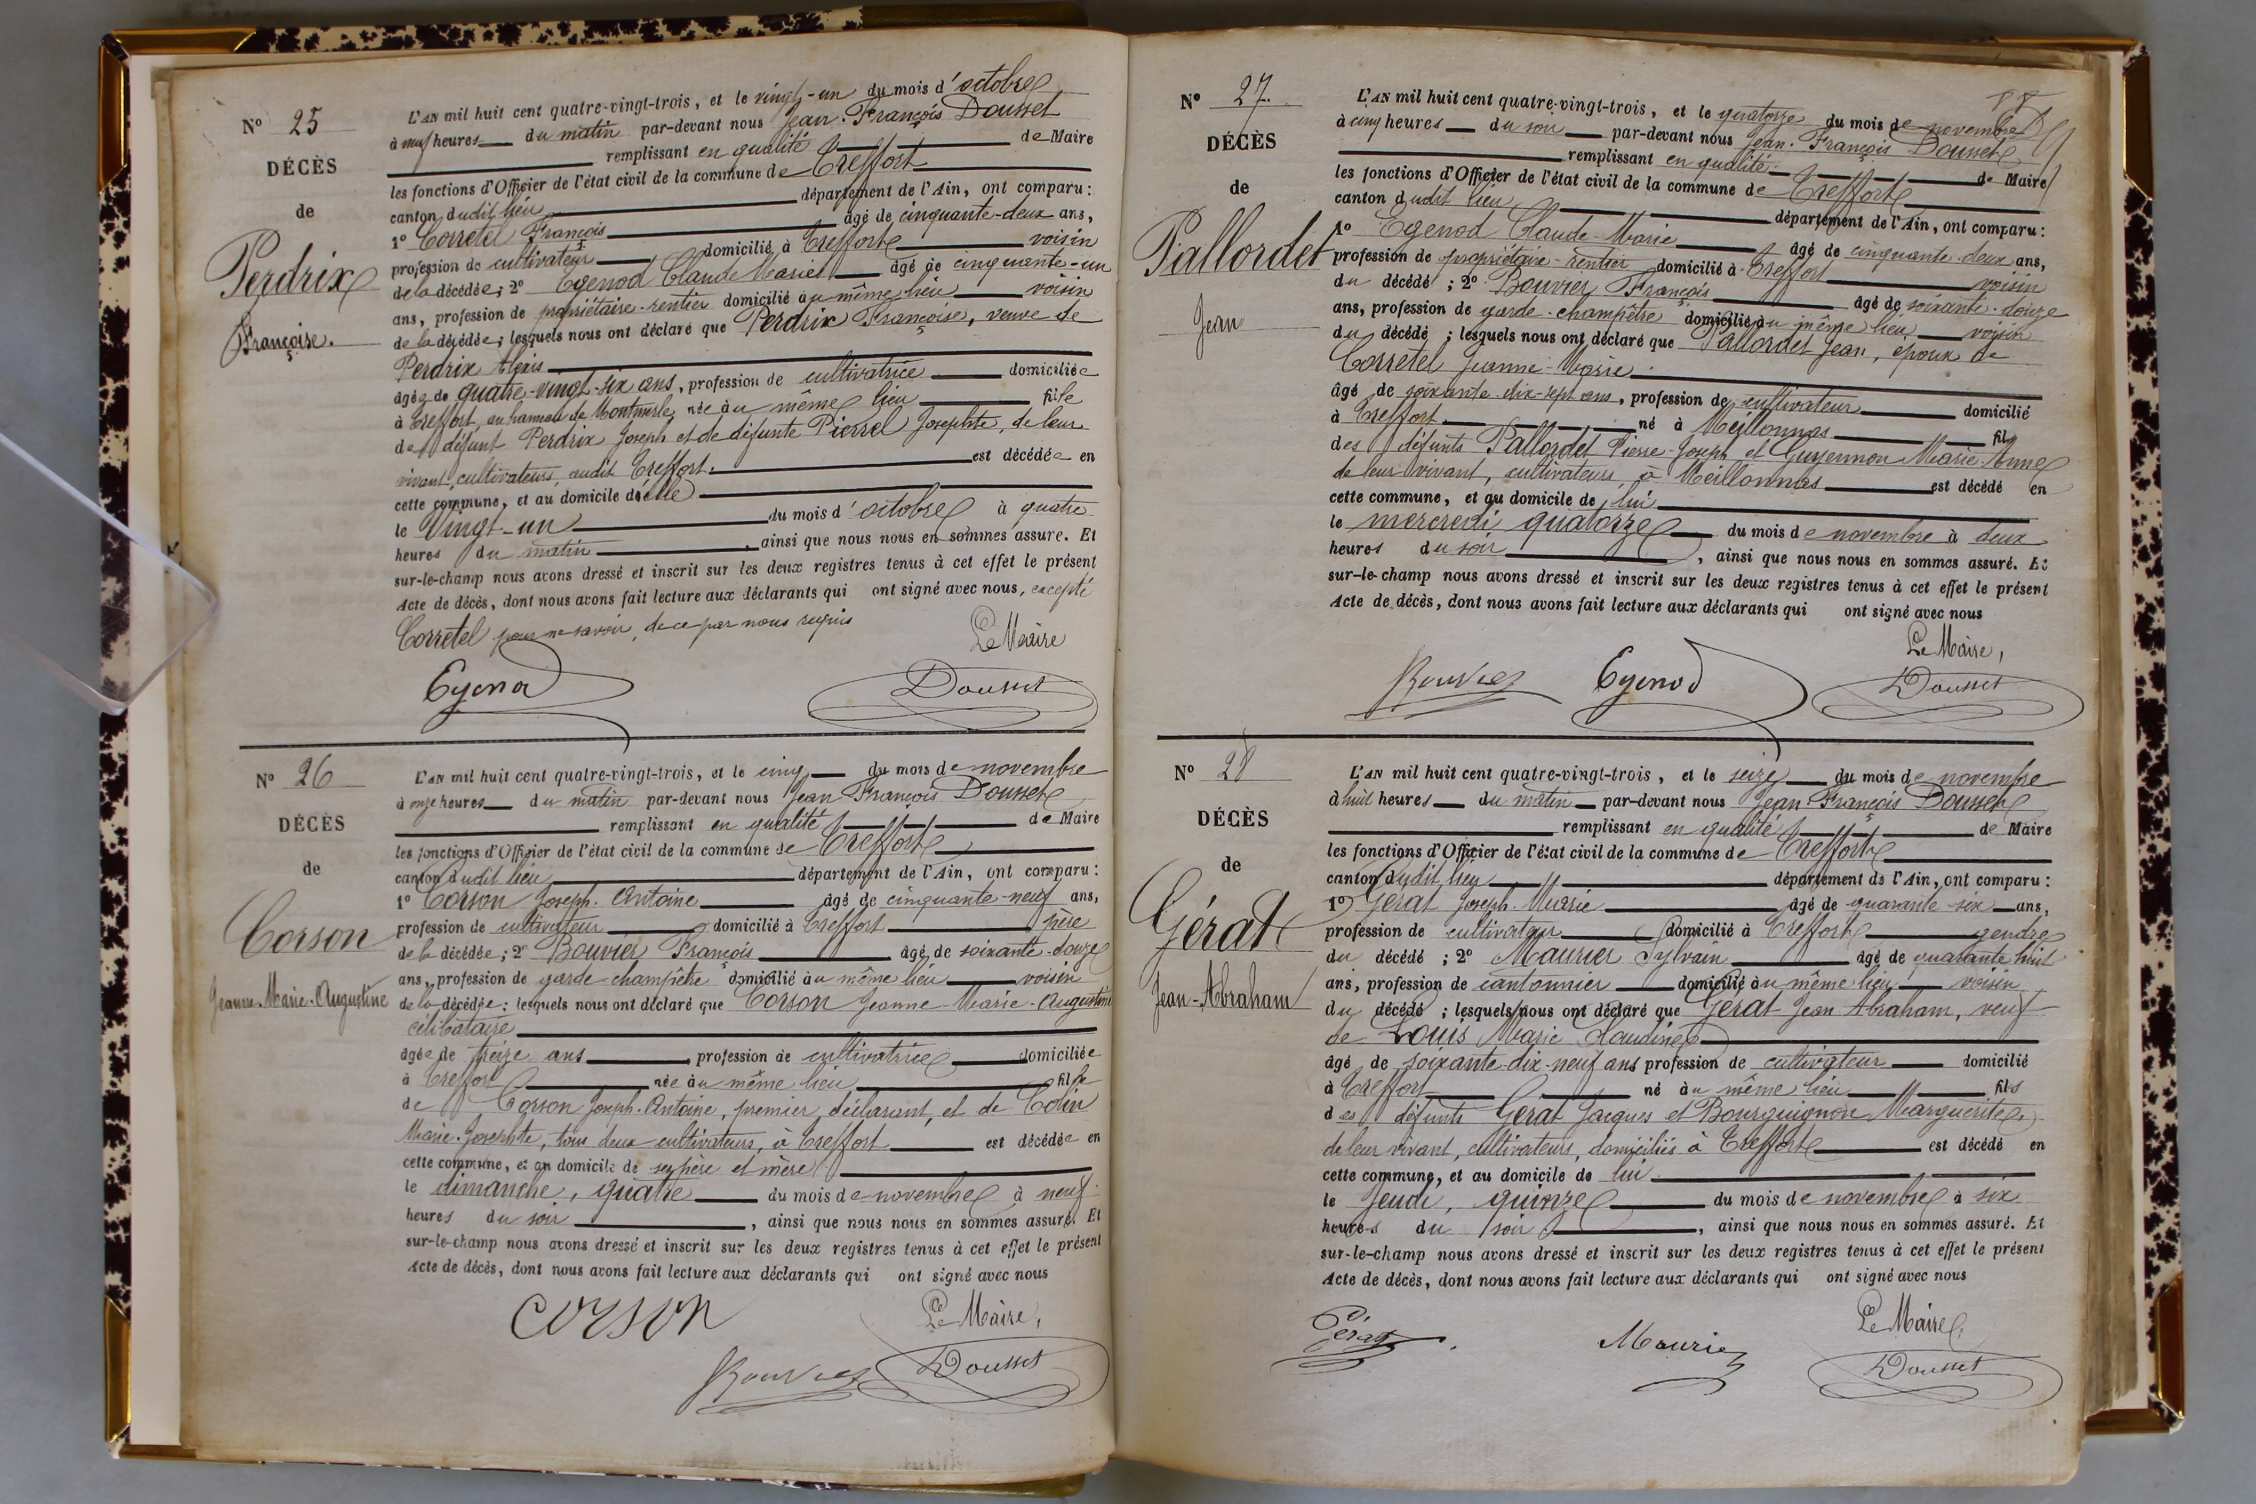 N° 25
DÉCÈS
de
Perdrix
Françoise.
L'AN mil huit cent quatre-vingt-trois, et le vingt-un du mois d'octobre
à neuf heures du matin par-devant nous Jean-François Dousset
remplissant en qualité de Maire
les fonctions d'Officier de l'état civil de la commune de Treffort
canton dudit lieu département de l'Ain, ont comparu :
1° Corretel François âgé de cinquante-deux ans,
profession de cultivateur domicilié à Treffort voisin
de la décédée ; 2° Egenod Claude Marie âgé de cinquante-un
ans, profession de propriétaire-rentier domicilié au même lieu voisin
de la décédée ; lesquels nous ont déclaré que Perdrix Françoise, veuve de
Perdrix Alexis
âgée de quatre-vingt-six ans, profession de cultivatrice domiciliée
à Treffort, au hameau de Montmerle, née au même lieu fille
de défunt Perdrix Joseph et de défunte Pierrel Josephte, de leur
vivant cultivateurs, audit Treffort. est décédée en
cette commune, et au domicile d'elle
le Vingt-un du mois d'octobre à quatre
heures du matin, ainsi que nous nous en sommes assuré. Et
sur-le-champ nous avons dressé et inscrit sur les deux registres tenus à cet effet le présent
Acte de décès, dont nous avons fait lecture aux déclarants qui ont signé avec nous, excepté
Corretel pour ne savoir, de ce par nous requis
Le Maire
Egenod
Dousset
N° 26
DÉCÈS
de
Corson
Jeanne-Marie-Augustine
L'AN mil huit cent quatre-vingt-trois, et le cinq du mois de novembre
à onze heures du matin par-devant nous Jean François Dousset
remplissant en qualité de Maire
les fonctions d'Officier de l'état civil de la commune de Treffort
canton dudit lieu département de l'Ain, ont comparu :
1° Corson Joseph-Antoine âgé de cinquante-neuf ans,
profession de cultivateur domicilié à Treffort père
de la décédée ; 2° Bouvier François âgé de soixante-douze
ans, profession de garde-champêtre domicilié au même lieu voisin
de la décédée : lesquels nous ont déclaré que Corson Jeanne-Marie-Augustine
célibataire
âgée de treize ans, profession de cultivatrice domiciliée
à Treffort née au même lieu fille
de Corson Joseph-Antoine, premier déclarant, et de Colin
Marie-Josephte, tous deux cultivateurs, à Treffort est décédée en
cette commune, et au domicile de ses père et mère
le dimanche, quatre du mois de novembre à neuf
heures du soir, ainsi que nous nous en sommes assuré. Et
sur-le-champ nous avons dressé et inscrit sur les deux registres tenus à cet effet le présent
Acte de décès, dont nous avons fait lecture aux déclarants qui ont signé avec nous
Le Maire,
corson
Bouvier
Dousset
N° 27.
DÉCÈS
de
Pallordet
Jean
L'AN mil huit cent quatre-vingt-trois, et le quatorze du mois de novembre
à cinq heures du soir par-devant nous Jean-François Dousset
remplissant en qualité de Maire
les fonctions d'Officier de l'état civil de la commune de Treffort
canton dudit lieu département de l'Ain, ont comparu :
1° Egenod Claude-Marie âgé de cinquante-deux ans,
profession de propriétaire-rentier domicilié à Treffort voisin
du décédé ; 2° Bouvier François âgé de soixante-douze
ans, profession de garde-champêtre domicilié au même lieu voisin
du décédé ; lesquels nous ont déclaré que Pallordet Jean, époux de
Corretel Jeanne-Marie
âgé de soixante-dix-sept ans, profession de cultivateur domicilié
à Treffort né à Meillonnas fils
des défunts Pallordet Pierre-Joseph et Guyennon Marie-Anne
de leur vivant, cultivateurs, à Meillonnas est décédé en
cette commune, et au domicile de lui
le mercredi quatorze du mois de novembre à deux
heures du soir, ainsi que nous nous en sommes assuré. Et
sur-le-champ nous avons dressé et inscrit sur les deux registres tenus à cet effet le présent
Acte de décès, dont nous avons fait lecture aux déclarants qui ont signé avec nous
Le Maire,
Bouvier
Egenod
Dousset
N° 28
DÉCÈS
de
Gérat
Jean-Abraham
L'AN mil huit cent quatre-vingt-trois, et le seize du mois de novembre
à huit heures du matin par-devant nous Jean-François Dousset
remplissant en qualité de Maire
les fonctions d'Officier de l'état civil de la commune de Treffort
canton dudit lieu département de l'Ain, ont comparu :
1° Gérat Joseph-Marie âgé de quarante six ans,
profession de cultivateur domicilié à Treffort gendre
du décédé ; 2° Maurier Sylvain âgé de quarante huit
ans, profession de cantonnier domicilié au même lieu voisin
du décédé ; lesquels nous ont déclaré que Gérat Jean Abraham, veuf
de Louis Marie Claudine
âgé de soixante-dix-neuf ans profession de cultivateur domicilié
à Treffort né au même lieu fils
des défunts Gérat Jacques et Bourguignon Marguerite
de leur vivant, cultivateurs, domiciliés à Treffort est décédé en
cette commune, et au domicile de lui
le Jeudi, quinze du mois de novembre à six
heures du soir, ainsi que nous nous en sommes assuré. Et
sur-le-champ nous avons dressé et inscrit sur les deux registres tenus à cet effet le présent
Acte de décès, dont nous avons fait lecture aux déclarants qui ont signé avec nous
Le Maire,
Gérat
Maurier
Dousset